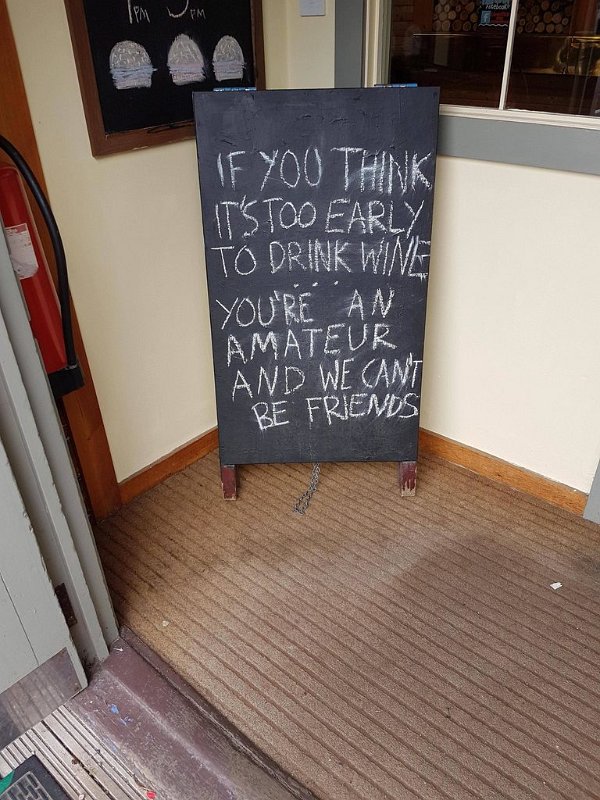 1PM 9PM
IF YOU THINK
IT'S TOO EARLY
TO DRINK WINE
....
YOU'RE AN
AMATEUR
AND WE CAN'T
BE FRIENDS